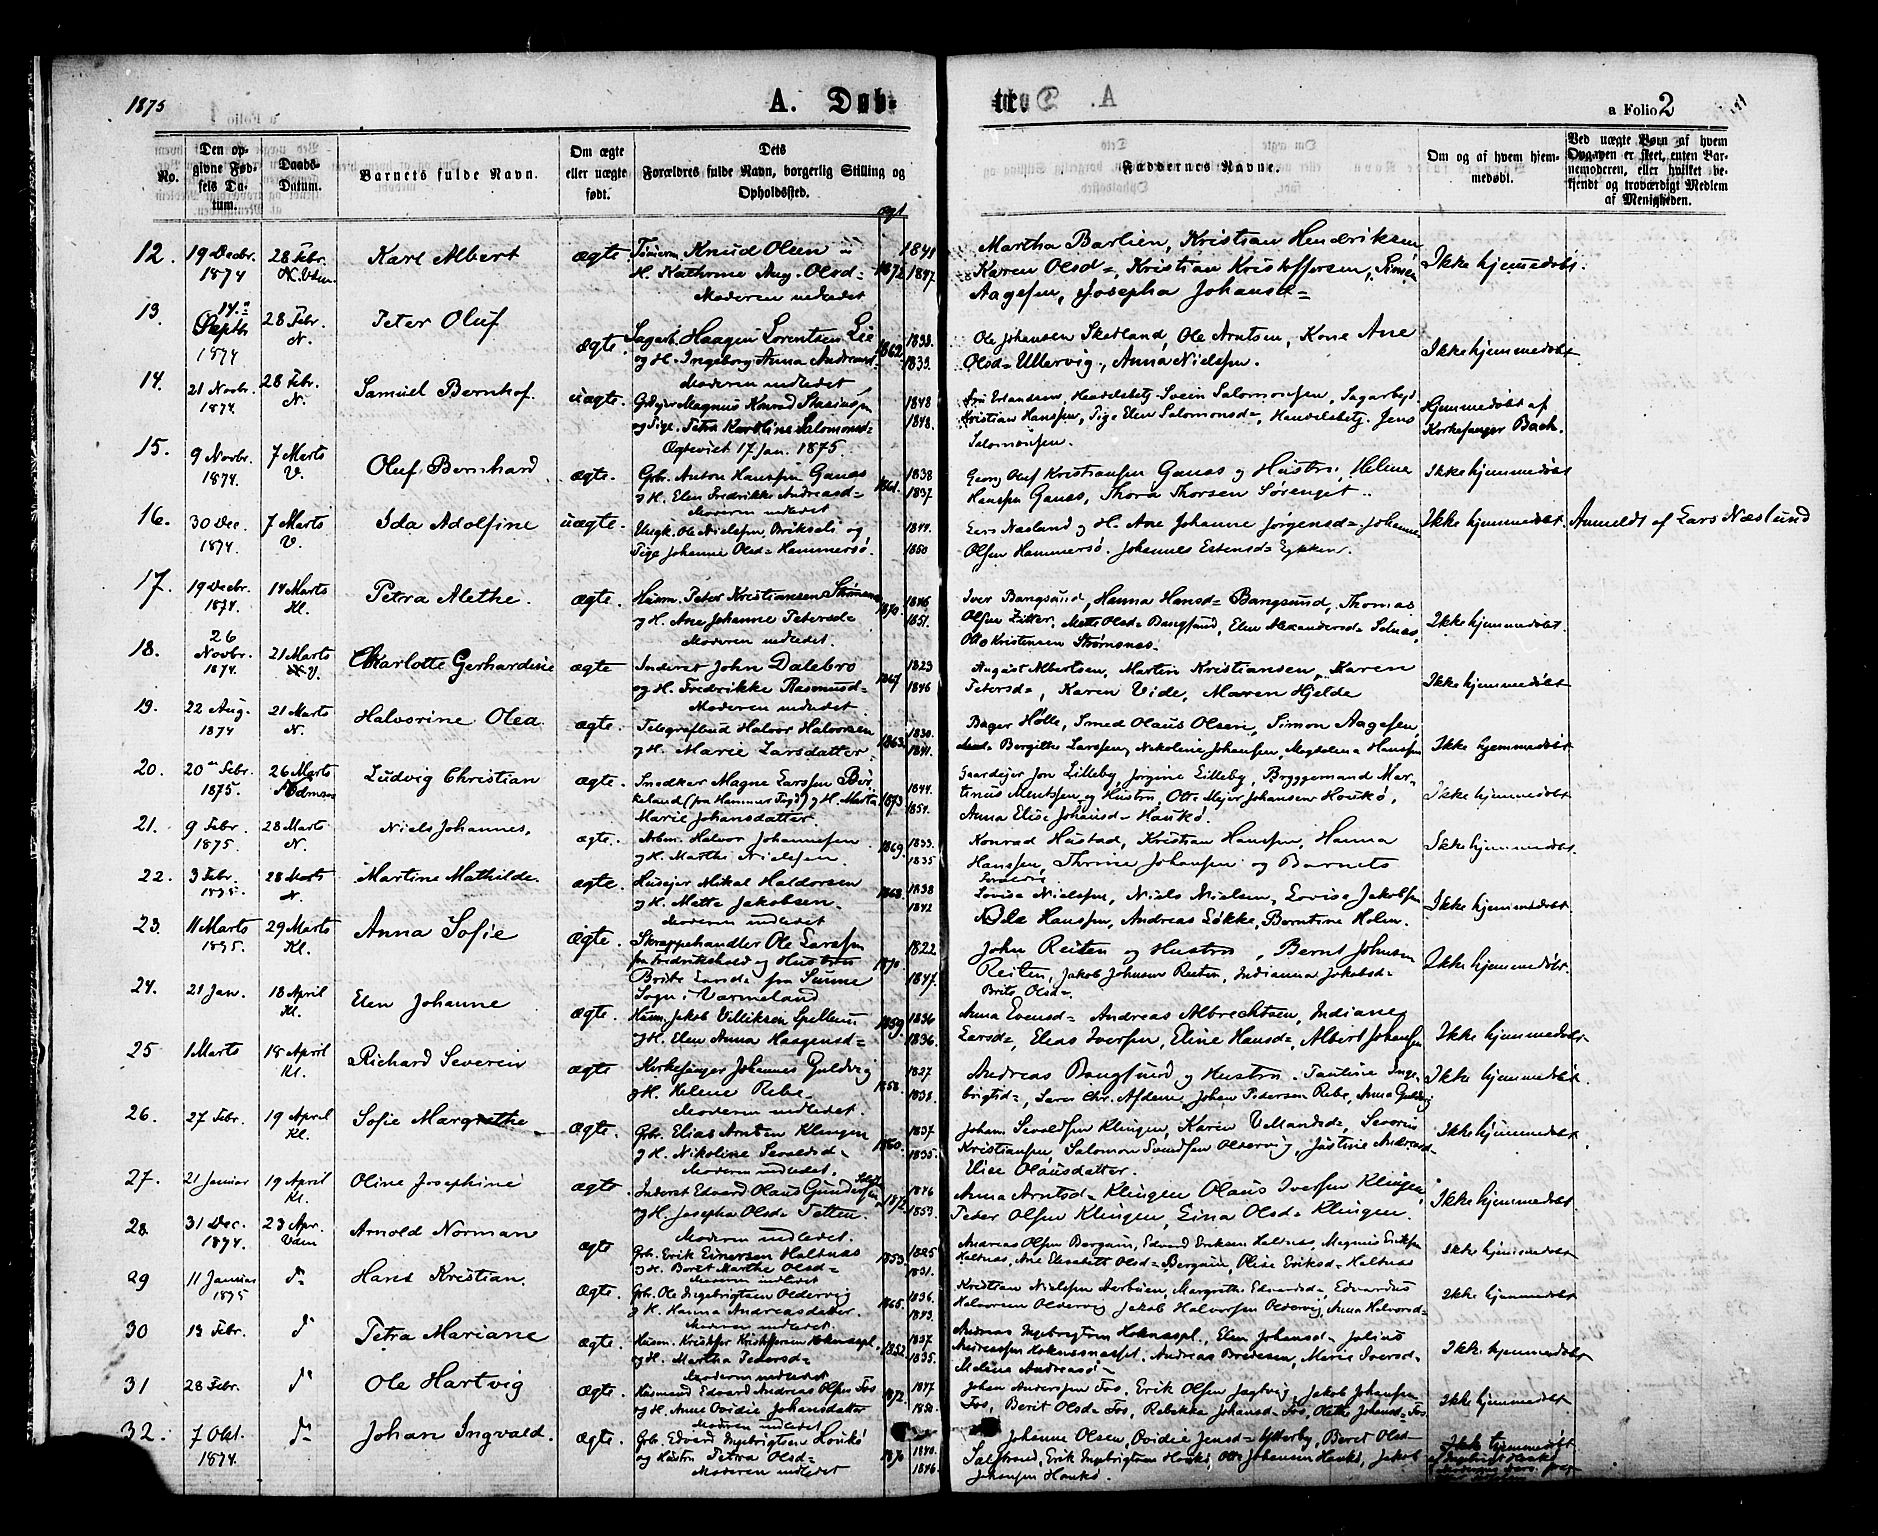 1875
A. Døb-
te.
a Folio 2
No.
Den op-
givne Fød-
sels Da-
tum.
Daabs-
Datum.
Barnets fulde Navn.
Om ægte
eller uægte
født.
Dets
Forældres fulde Navn, borgerlig Stilling og
Opholdssted.
Faddernes Navne.
Om og af hvem hjem-
medøbt.
Ved uægte Børn af hvem
Opgaven er skeet, enten Bar-
nemoderen, eller hvilket be-
kjendt og troværdigt Medlem
af Menigheden.
12. 19 Decbr. 1874 28 Febr. Karl Albert ægte Knud Olsen 1872 1841 1847
Moderen indledet
Martha Barlien, Kristian Hendriksen
Karen Olsd=, Kristian Kristoffersen, Simen
Aagesen, Josepha Johansd=
Ikke hjemmedøbt.
13. 14 Septbr 1874 28 Febr. N. Peter Oluf ægte. Haagen Lorentsen Lie
og H. Ingeborg Anna Andreasd. 1862 1833
Moderen indledet
Ole Johansen Sketland, Ole Arntsen, Kone Ane
Olsd= Ullervig, Anna Nielsen.
Ikke hjemmedøbt
14. 21 Novbr. 1874. 28 Febr. N. Samuel Bernhof. uægte. Magnus Konrad
og Pige. Petra Karoline Salomonsd= 1848 1848.
Ægteviet 17 Jan. 1875.
Svein Salomonsen,
Kristian Hanssen, Pige Elen Salomonsd=, Handelsbetj. Jens
Salomonsen.
Hjemmedøbt af
Kirkesanger Bach.
15. 9 Novbr. 1874. 7 Marts V. Oluf Bernhard ægte. Gbr. Anton Hanssen Ganas
og H. Elen Fredrikke Andreasd= 1861. 1838 1837.
Moderen indledet
Georg Oluf Kristiansen Ganas og Hustru, Helene
Hanssen Ganas, Thora Thorsen Sørenget.
Ikke hjemmedøbt
16. 30 Dec. 1874. 7 Marts V. Ida Adolfine uægte. Ungk. Ole Nielsen og
Pige Johanne Olsd= Hammersø. 1850
Lars Næsland og H. Ane Johanne Jørgensd=, Johannes
Olsen Hammersø. Johannes Estensd=
Ikke hjemmedøbt.
Anmeldt af Lars Næslund
17. 19 Decbr. 1874. 14 Marts Kl. Petra Alethe. ægte. Husm. Peter Kristiansen
og H. Ane Johanne Petersd= 1870. 1846 1851.
Moderen indledet.
Iver Bangsund, Hanna Hansd= Bangsund, Thomas
Olsen Zitter, Mette Olsd= Bangsund, Elen Alexandersd= Selnæs,
Otto Kristensen Strømsnes.
Ikke hjemmedøbt.
18. 26 Novbr. 1874. 21 Marts V. Charlotte Gerhardine ægte Inderst John Dalebro
og H. Fredrikke Rasmusd= 1867 1823 1846
Moderen indledet.
August Albertsen, Martin Kristiansen, Karen
Petersd=, Karen Vide, Maren Hjelde
Ikke hjemmedøbt
19. 22 Aug. 1874 21 Marts N. Halvorine Olea. ægte. Telegrafbud Halvor Halvorsen
og H. Marie Larsdatter. 1863. 1830. 1841.
Bager Holte, Smed Olaus Olsen, Simon Aagesen,
Bergitte Larssen, Nikoline Johansen, Magdalena Hanssen
Ikke hjemmedøbt
20. 20 Febr. 1875. 26 Marts Ludvig Christian ægte. Snedker Magne Larssen Bir-
keland (fra Hammer Prgd) og H. Marta 1873 1844. 1854.
Marie Johansdatter.
Gaardejer Jon Lilleby, Jørgine Lilleby, Bryggemand Mar-
tinus Mentzen og Hustru, Otto Mejer Johansen Houkø,
Anna Elise Johansd= Haukø.
Ikke hjemmedøbt
21. 9 Febr. 1875. 28 Marts N. Niels Johannes, ægte. Arbm. Halvor Johannesen
og H. Marthe Nielsen. 1869. 1833. 1835
Konrad Hustad, Kristian Hanssen, Hanna
Hanssen, Thrine Johansen og Barnets
Forældre
Ikke hjemmedøbt.
22. 3 Febr. 1875. 28 Marts N. Martine Mathilde. ægte. Husejer Mikal Haldorsen
og H. Mette Jakobsen 1868. 1838 1842
Moderen indledet
Lovise Nielsen, Niels Nielsen, Lovise Jakobsen
Hanssen, Andreas Løkke, Berntine Holm.
Ikke hjemmedøbt
23. 11 Marts 1875. 29 Marts Kl. Anna Sofie ægte. Skræppehandler Ole Larssen
fra Fredrikshald og Hustru 1870 1822. 1847.
Brite Larsd= fra Sunne
Sogn i Vermeland
John Reiten og Hustru, Bernt Johnsen
Reiten, Jakob Johnsen Reiten, Indianna Jakobsd=
Brite Olsd=.
Ikke hjemmedøbt.
24. 21 Jan. 18 April Kl. Elen Johanne ægte. Husm. Jakob Villiksen Spellum
og H. Elen Anna Haagensd= 1859. 1836 1836.
Anna Evensd= Andreas Albrechtsen, Indiane
Larsd=, Elias Iversen, Eline Hansd=, Albert Johansen
Ikke hjemmedøbt
25 1 Marts 18 April Kl. Richard Severin ægte Kirkesanger Johannes Guldvig
og H. Helene Rebe 1858. 1827 1838.
Moderen indledet.
Andreas Bangsund og Hustru. Pauline Inge-
brigtsd=, Johan Pedersen Rebe, Anna Guldvig
Ikke hjemmedøbt.
26. 27 Febr. 19 April Kl. Sofie Margrethe ægte. Gbr. Elias Arntsen Klingen
og H. Nikoline Sevaldsd= 1860. 1837. 1835.
Moderen indledet.
Johan Sevaldsen Klingen, Karen Villandsd=, Severin
Kristiansen, Salomon Svendsen Oldervig, Justine Andreasd=
Elise Olausdatter.
Ikke hjemmedøbt
27. 21 Januar 19 April Kl. Oline Josephine ægte. Inderst Edvard Olaus Gundersen
og H. Josepha Olsd= Tetten. 1872. 1846 1853.
Moderen indledet.
Anna Arntsd= Klingen Olaus Iversen Klingen,
Peter Olsen Klingen, Eina Olsd= Klingen.
Ikke hjemmedøbt.
28. 31 Dec. 1874. 23 Apr. Arnold Norman ægte Gbr. Erik Einersen Haltnæs
og H. Beret Marthe Olsd= 1853. 1825 1831.
Moderen indledet
Andreas Olsen Bergum, Edvard Eriksen Haltnæs, Magnus Eriksen
Haltnæs, Ane Elisabeth Olsd= Bergum, Oline Eriksd= Haltnæs
Ikke hjemmedøbt
29 11 Januar 1875 do Hans Kristian. ægte. Gbr. Ole Ingebrigtsen Oldervig
og H. Hanna Andreasdatter. 1865. 1836. 1843.
Moderen indledet
Kristian Nielsen Aarbuen, Margrethe Edvardsd=, Edvardus
Halvorsen Oldervig Jakob Halvorsen Oldervig, Anna Halvorsd=
Ikke hjemmedøbt
30 13 Febr. do Petra Mariane ægte. Husm. Kristofer Kristoffersen Hoknæspl.
og H. Martha Pedersd= 1852. 1827. 1835.
Moderen indledet
Andreas Ingebrigtsen Hoknæspl., Elen Johansd=, Julius
Andreassen Hoknæsspl., Andreas Bredesen, Marie Iversd=
Meline Andreasd=
Ikke hjemmedøbt
31 28 Febr. do Ole Hartvig ægte. Husmand Edvard Andreas Olsen Fos
og H. Anne Ovidie Johansdatter 1872. 1847. 1850.
Moderen indledet
Johan Anderssen Fos, Erik Olsen Jagtvig, Jakob Johansen
Fos, Berit Olsd= Fos, Rebekka Johansd= Fos, Olethe Johansd= Fos
Ikke hjemmedøbt
32. 7 Okt. 1874. do Johan Ingvald. ægte. Gbr. Edvard Ingebrigtsen Houkø
og Hustru Petra Olsd= 1870 1840. 1846.
Moderen indledet
Johanne Olsen, Ovidie Jensd= Ytterby, Beret Olsd=
Salstrand, Erik Ingebrigtsen Houkø, Otto Johansen Houkø, Jakob
Johansen Houkø.
Ikke hjemmedøbt